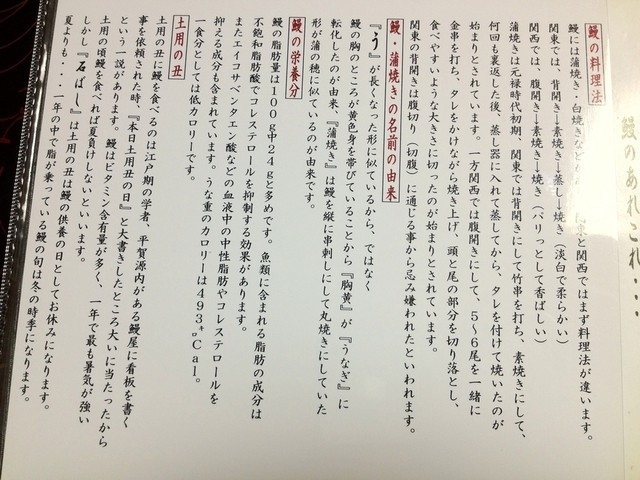 鰻のあれこれ・・・
鰻の料理法
鰻には蒲焼き・白焼きな 関東と関西ではまず料理法が違います。
関東では、背開き→素焼き→蒸し→焼き（淡白で柔らかい）
関西では、腹開き→素焼き→焼き（パリっとして香ばしい）
蒲焼きは元禄時代初期、関東では背開きにして竹串を打ち、素焼きにして、
何回も裏返した後、蒸し器に入れて蒸してから、タレを付けて焼いたのが
始まりとされています。一方関西では腹開きにして、５〜６尾を一緒に
金串を打ち、タレをかけながら焼き上げ、頭と尾の部分を切り落とし、
食べやすいような大きさに切ったのが始まりとされています。
関東の背開きは腹切り（切腹）に通じる事から忌み嫌われたといわれます。
鰻・蒲焼きの名前の由来
『う』が長くなった形に似ているから、ではなく
鰻の胸のところが黄色身を帯びていることから『胸黄』が『うなぎ』に
転化したのが由来、『蒲焼き』は鰻を縦に串刺しにして丸焼きにしていた
形が蒲の穂に似ているのが由来です。
鰻の栄養分
鰻の脂肪量は100ｇ中24ｇと多めです。魚類に含まれる脂肪の成分は
不飽和脂肪酸でコレステロールを抑制する効果があります。
またエイコサペンタエン酸などの血液中の中性脂肪やコレステロールを
抑える成分も含まれています。うな重のカロリーは493㌔Cal。
一食分としては低カロリーです。
土用の丑
土用の丑に鰻を食べるのは江戸期の学者、平賀源内がある鰻屋に看板を書く
事を依頼された時、『本日土用丑の日』と大書きしたところ大いに当たったから
という一説があります。鰻はビタミン含有量が多く、一年で最も暑気が強い
土用の頃鰻を食べれば夏負けしないといいます。
しかし『石ばし』は土用の丑は鰻の供養の日としてお休みになります。
夏よりも・・・一年の中で脂が乗っている鰻の旬は冬の時季になります。